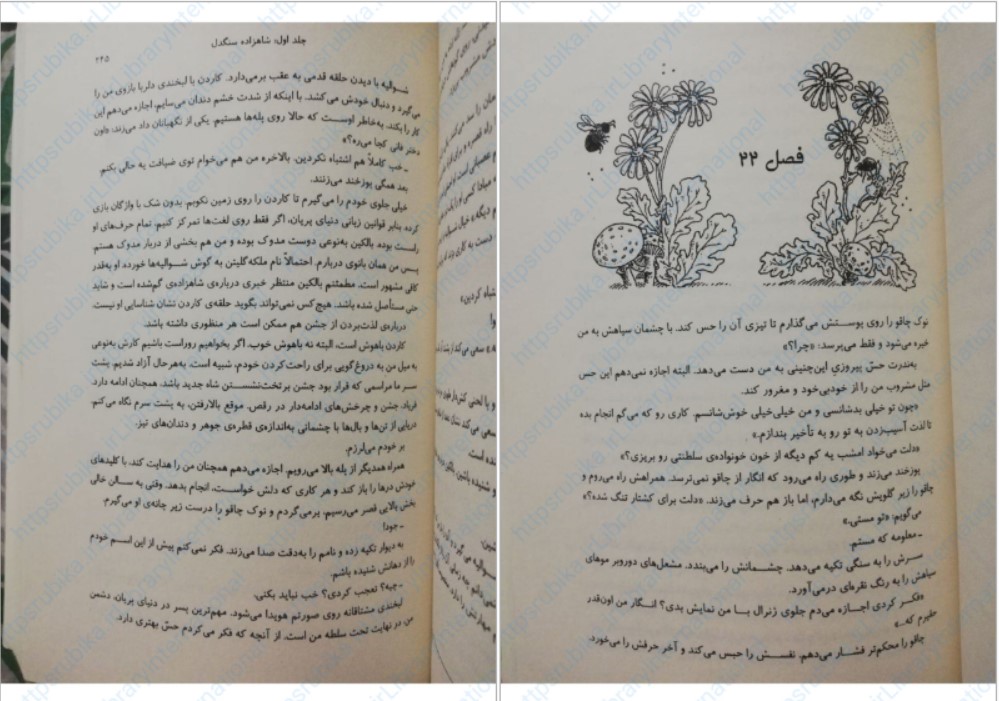 جلد اول: شاهزاده سنگدل
۲۴۵
شوالیه با دیدن حلقه قدمی به عقب برمی‌دارد. کاردن با لبخندی دلربا بازوی من را
می‌گیرد و دنبال خودش می‌کشد. با اینکه از شدت خشم دندان می‌سایم، اجازه می‌دهم این
کار را بکند. به‌خاطر اوست که حالا روی پله‌ها هستیم. یکی از نگهبانان داد می‌زند: «اون
دختر فانی کجا می‌ره؟»
ـ خب کاملاً هم اشتباه نکردین. بالاخره من هم می‌خوام توی ضیافت یه حالی بکنم.
بعد همگی پوزخند می‌زنند.
خیلی جلوی خودم را می‌گیرم تا کاردن را روی زمین نکوبم. بدون شک با واژگان بازی
کرده بنابر قوانین زبانی دنیای پریان. اگر فقط روی لغت‌ها تمرکز کنیم، تمام حرف‌های او
راست بوده. بالکین به‌نوعی دوست مدوک بوده و من هم بخشی از دربار مدوک هستم.
پس من همان بانوی دربارم. احتمالاً نام ملکه گلیتن به گوش شوالیه‌ها خورده. او به‌قدر
کافی مشهور است. مطمئنم بالکین منتظر خبری درباره‌ی شاهزاده‌ی گم‌شده است و شاید
حتی مستأصل شده باشد. هیچ‌کس نمی‌تواند بگوید حلقه‌ی کاردن نشان شناسایی او نیست.
درباره‌ی لذت‌بردن از جشن هم ممکن است هر منظوری داشته باشد.
کاردن باهوش است، البته نه باهوش خوب. اگر بخواهیم روراست باشیم کارش به‌نوعی
به میل من به دروغ‌گویی برای راحت‌کردن خودم، شبیه است. به‌هرحال آزاد شدیم. پشت
سر ما مراسمی که قرار بود جشن برتخت‌نشستن شاه جدید باشد، همچنان ادامه دارد.
فریاد، جشن و چرخش‌های ادامه‌دار در رقص. موقع بالارفتن، به پشت سرم نگاه می‌کنم.
دریایی از تن‌ها و بال‌ها با چشمانی به‌اندازه‌ی قطره‌ی جوهر و دندان‌های تیز.
بر خودم می‌لرزم.
همراه همدیگر از پله بالا می‌رویم. اجازه می‌دهم همچنان من را هدایت کند، با کلیدهای
خودش درها را باز کند و هر کاری که دلش خواست، انجام بدهد. وقتی به سالن خالی
بخش بالایی قصر می‌رسیم، برمی‌گردم و نوک چاقو را درست زیر چانه‌ی او می‌گیرم.
ـ جود!
به دیوار تکیه زده و نامم را به‌دقت صدا می‌زند. فکر نمی‌کنم پیش از این اسم خودم
را از دهانش شنیده باشم.
ـ چیه؟ تعجب کردی؟ خب نباید بکنی.
لبخندی مشتاقانه روی صورتم هویدا می‌شود. مهم‌ترین پسر در دنیای پریان، دشمن
من در نهایت تحت سلطه من است. از آنچه که فکر می‌کردم حسّ بهتری دارد.
فصل ۲۲
نوک چاقو را روی پوستش می‌گذارم تا تیزی آن را حس کند. با چشمان سیاهش به من
خیره می‌شود و فقط می‌پرسد: «چرا؟»
به‌ندرت حسّ پیروزیِ این‌چنینی به من دست می‌دهد. البته اجازه نمی‌دهم این حس
مثل مشروب من را از خودبی‌خود و مغرور کند.
«چون تو خیلی بدشانسی و من خیلی‌خیلی خوش‌شانسم. کاری رو که می‌گم انجام بده
تا لذت آسیب‌زدن به تو رو به تأخیر بندازم.»
«دلت می‌خواد امشب یه کم دیگه از خون خونواده‌ی سلطنتی رو بریزی؟»
پوزخند می‌زند و طوری راه می‌رود که انگار از چاقو نمی‌ترسد. همراهش راه می‌روم و
چاقو را زیر گلویش نگه می‌دارم، اما باز هم حرف می‌زند. «دلت برای کشتار تنگ شده؟»
می‌گویم: «تو مستی.»
ـ معلومه که مستم.
سرش را به سنگی تکیه می‌دهد. چشمانش را می‌بندد. مشعل‌های دوروبر موهای
سیاهش را به رنگ نقره‌ای درمی‌آورد.
«فکر کردی اجازه می‌دم جلوی ژنرال با من نمایش بدی؟ انگار من اون‌قدر
حقیرم که...»
چاقو را محکم‌تر فشار می‌دهم. نفسش را حبس می‌کند و آخر حرفش را می‌خورد.